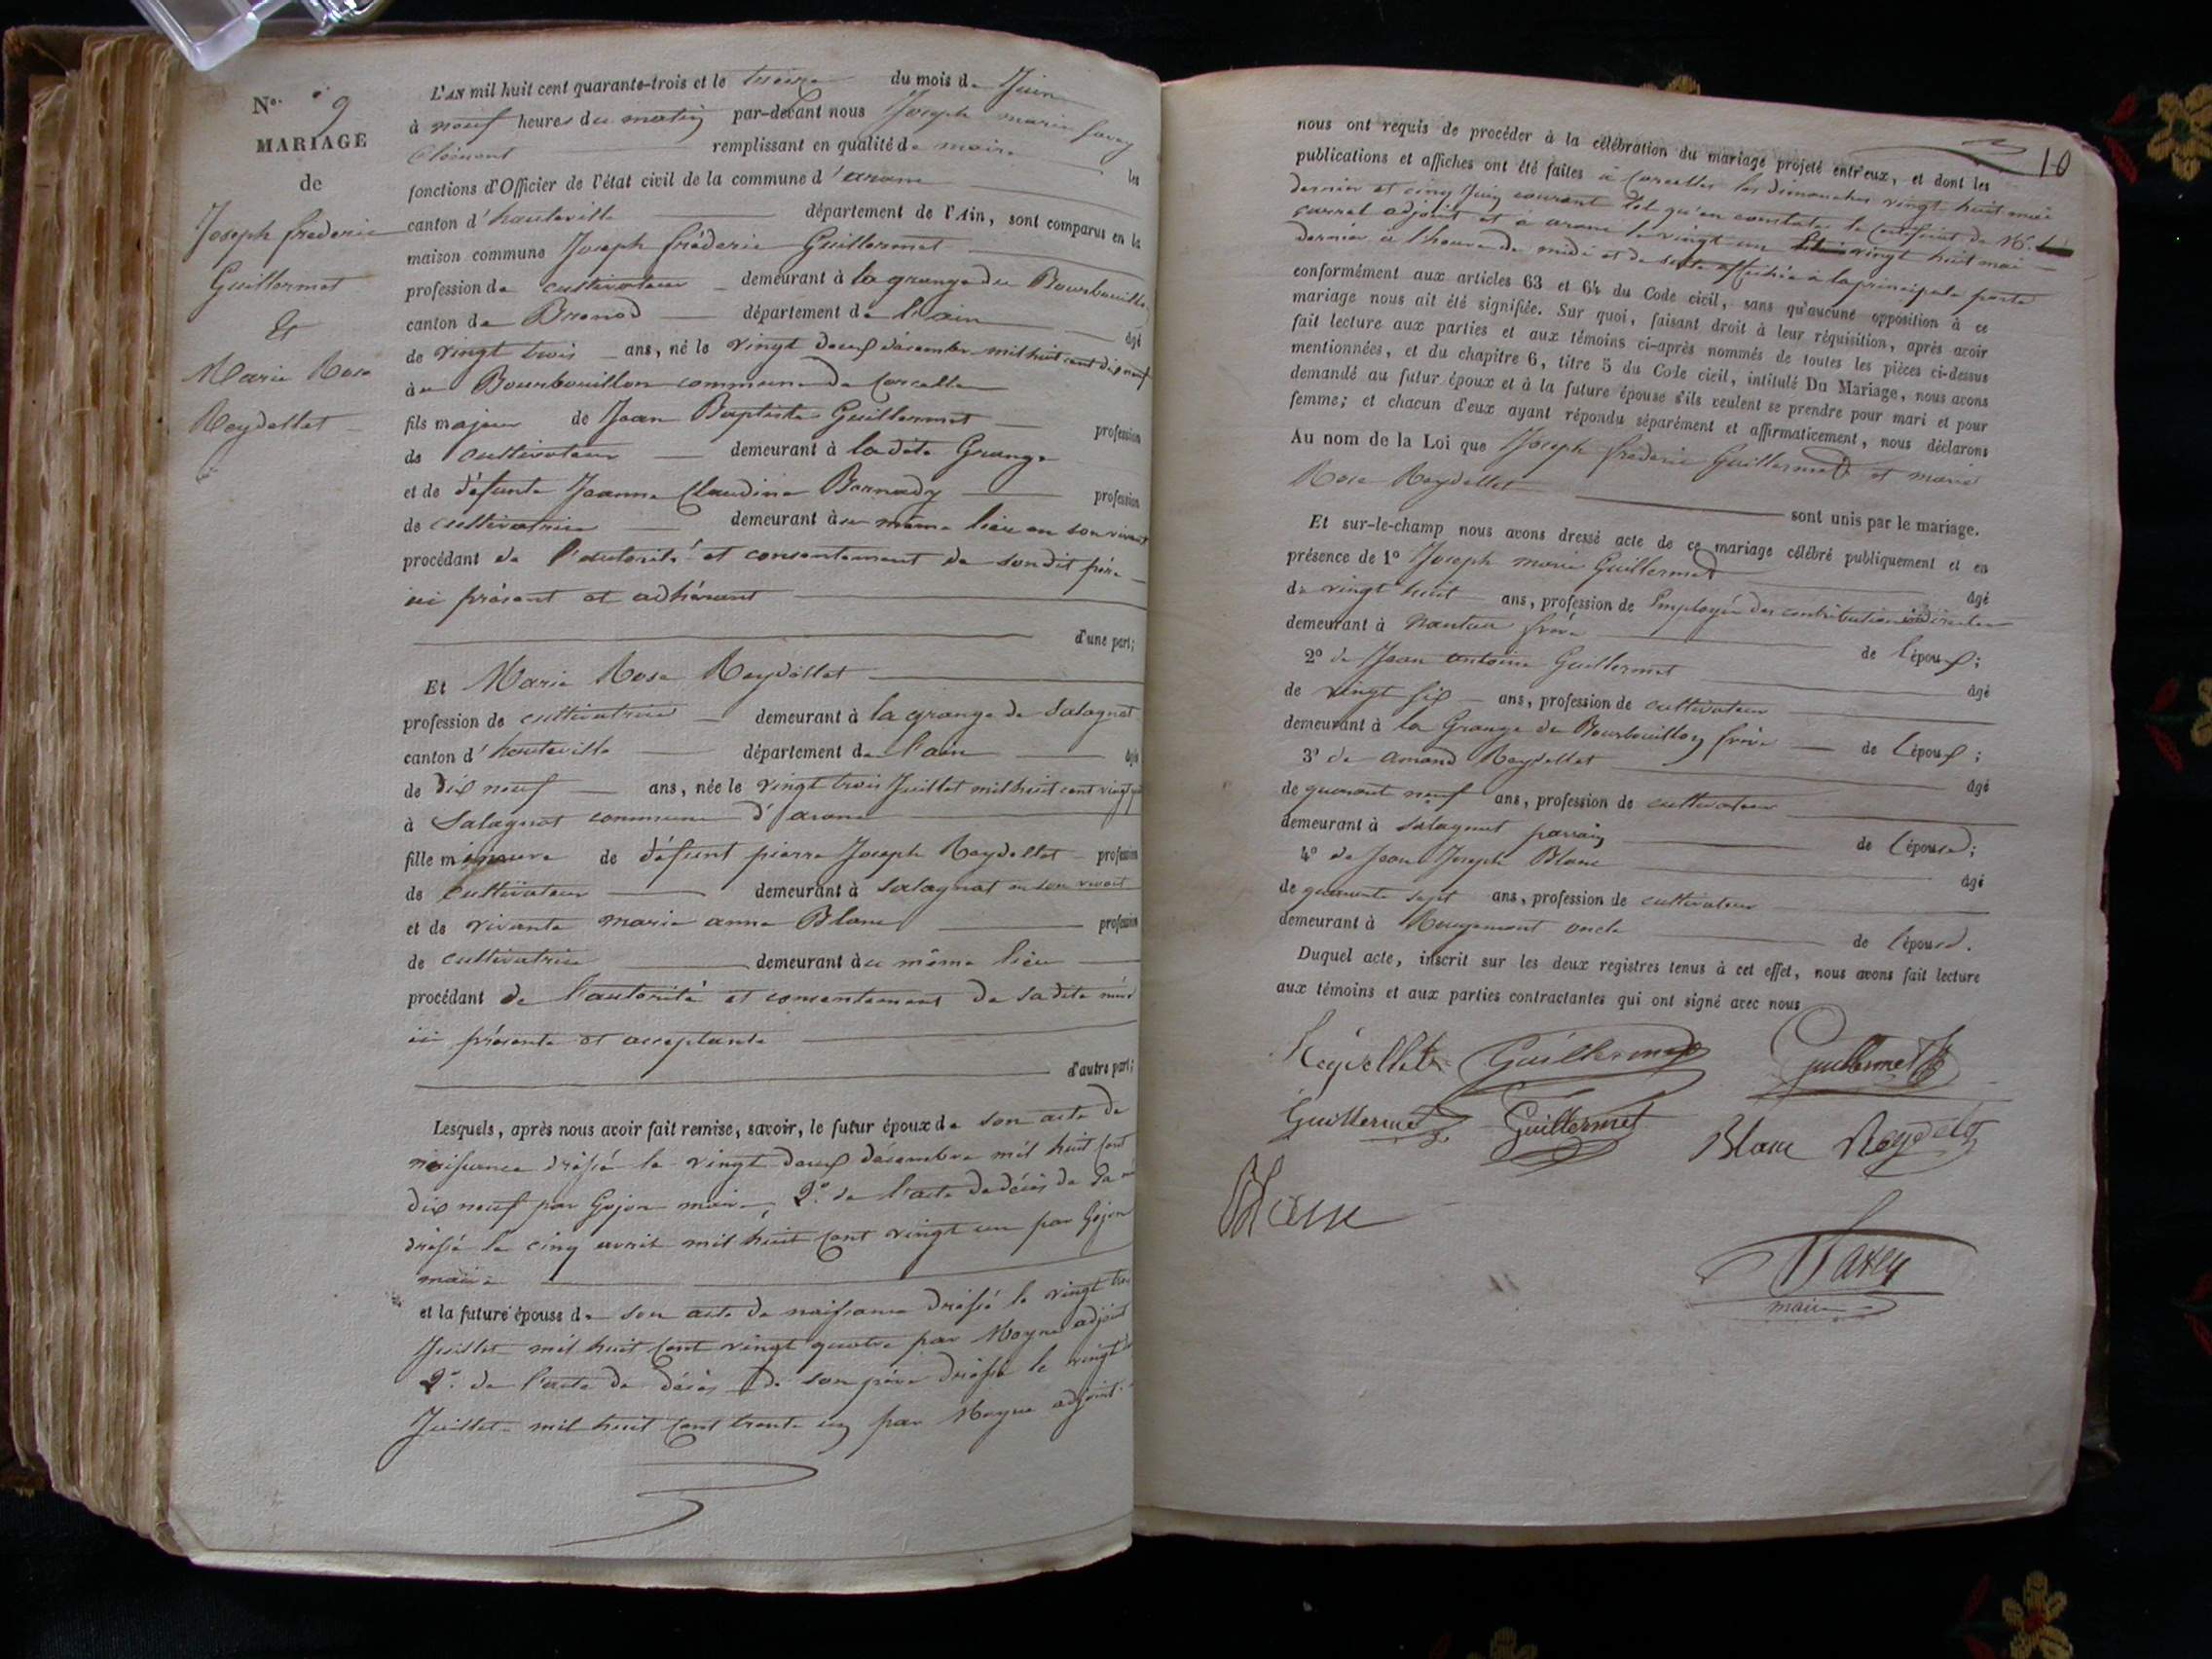 N° 9
MARIAGE
de
Joseph frederic
Guillermet
Et
Marie Rose
Reydellet
L'AN mil huit cent quarante-trois et le treize du mois de Juin
à neuf heures du matin par-devant nous Joseph marie Savey
Clément remplissant en qualité de maire les
fonctions d'Officier de l'état civil de la commune d'arane
canton d'hauteville département de l'Ain, sont comparus en la
maison commune Joseph fréderic Guillermet
profession de cultivateur demeurant à la grange du Bourbouillon
canton de Brenod département de l'ain âgé
de vingt trois ans, né le vingt deux décembre mil huit cent dix neuf
à Bourbouillon commune de Corcelle
fils majeur de Jean Baptiste Guillermet profession
de cultivateur demeurant à ladite Grange
et de défunte Jeanne Claudine Bornady profession
de cultivatrice demeurant au même lieu en son vivant
procédant de l'autorité et consentement de son dit père
ici présent et adhérant
d'une part;
Et Marie Rose Reydellet
profession de cultivatrice demeurant à la grange de Salagnat
canton d'hauteville département de l'ain âgée
de dix neuf ans, née le vingt trois Juillet mil huit cent vingt
à Salagnat commune d'arane
fille mineure de défunt pierre Joseph Reydellet profession
de cultivateur demeurant à Salagnat en son vivant
et de vivante marie anne Blanc profession
de cultivatrice demeurant au même lieu
procédant de l'autorité et consentement de sadite mère
ici présente et acceptante
d'autre part;
Lesquels, après nous avoir fait remise, savoir, le futur époux de son acte de
naissance dressé le vingt deux decembre mil huit cent
dix neuf par Gojon maire, 2° de l'acte de décès de sa
dressé le cinq avril mil huit cent vingt un par Gojon
maire
et la future épouse de son acte de naissance dressé le vingt trois
Juillet mil huit cent vingt quatre par Moyne adjoint
2° de l'acte de décès de son père dressé le vingt
Juillet mil huit cent trente un par Moyne adjoint
10
nous ont requis de procéder à la célébration du mariage projeté entr'eux, et dont les
publications et affiches ont été faites à Corcelles les dimanches vingt huit mai
dernier et cinq Juin courant tel qu'en constate le certificat de M.
carrel adjoint et à arane le vingt un vingt huit mai
dernier à l'heure de midi et de suite affichée à la principale porte
conformément aux articles 63 et 64 du Code civil, sans qu'aucune opposition à ce
mariage nous ait été signifiée. Sur quoi, faisant droit à leur réquisition, après avoir
fait lecture aux parties et aux témoins ci-après nommés de toutes les pièces ci-dessus
mentionnées, et du chapitre 6, titre 5 du Code civil, intitulé Du Mariage, nous avons
demandé au futur époux et à la future épouse s'ils veulent se prendre pour mari et pour
femme; et chacun d'eux ayant répondu séparément et affirmativement, nous déclarons
Au nom de la Loi que Joseph fréderic Guillermet et marie
Rose Reydellet sont unis par le mariage.
Et sur-le-champ nous avons dressé acte de ce mariage célébré publiquement et en
présence de 1° Joseph marie Guillermet âgé
de vingt huit ans, profession de Employé des contributions indirectes
demeurant à Nantua frère de l'époux;
2° de Jean antoine Guillermet âgé
de vingt six ans, profession de cultivateur
demeurant à la Grange du Bourbouillon frère de l'époux;
3° de amand Reydellet âgé
de quarante neuf ans, profession de cultivateur
demeurant à Salagnat parrain de l'épouse;
4° de Jean Joseph Blanc âgé
de quarante sept ans, profession de cultivateur
demeurant à Rougemont oncle de l'épouse.
Duquel acte, inscrit sur les deux registres tenus à cet effet, nous avons fait lecture
aux témoins et aux parties contractantes qui ont signé avec nous
Reydellet Guillermet Guillermet
Guillermet Guillermet Blanc Reydelet
Blanc
Savey
maire